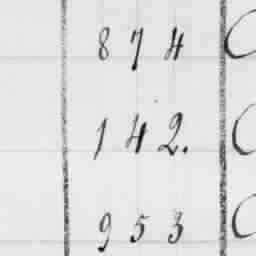 874
142.
953